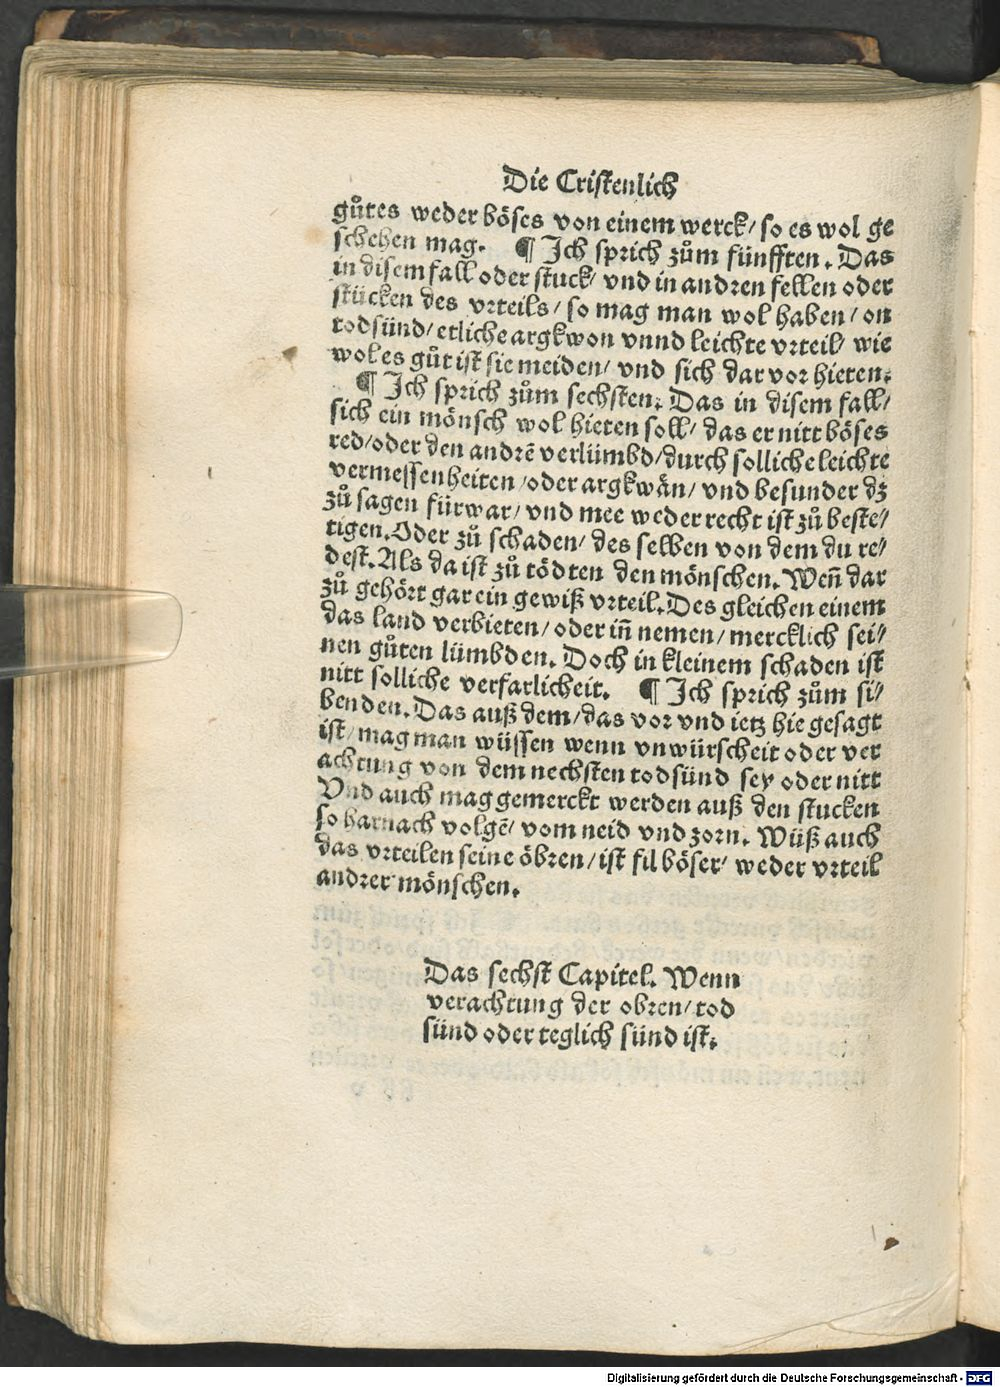 Die Cristenlich
gůtes weder böses von einem werck/ so es wol ge
schehen mag. ¶ Ich sprich zům fünfften. Das
in disem fall oder stuck/ vnd in andren fellen oder
stücken des vrteils/ so mag man wol haben/ on
todsünd/ etliche argkwon vnnd leichte vrteil/ wie
wol es gůt ist sie meiden/ vnd sich dar vor hieten.
¶ Ich sprich zům sechsten. Das in disem fall/
sich ein mönsch wol hieten soll/ das er nitt böses
red/ oder den andrē verlümbd/ durch solliche leichte
vermessenheiten/ oder argkwän/ vnd besunder dz
zů sagen fürwar/ vnd mee weder recht ist zů beste/
tigen. Oder zů schaden/ des selben von dem du re/
dest. Als da ist zů tödten den mönschen. Weñ dar
zů gehört gar ein gewiß vrteil. Des gleichen einem
das land verbieten/ oder iñ nemen/ mercklich sei/
nen gůten lümbden. Doch in kleinem schaden ist
nitt solliche verfarlicheit. ¶ Ich sprich zům si/
benden. Das auß dem/ das vor vnd ietz hie gesagt
ist/ mag man wüssen wenn vnwürscheit oder ver
achtung von dem nechsten todsünd sey oder nitt
Vnd auch mag gemerckt werden auß den stucken
so harnach volgē/ vom neid vnd zorn. Wüß auch
das vrteilen seine öbren/ ist fil böser/ weder vrteil
andrer mönschen.
Das sechst Capitel. Wenn
verachtung der obren/ tod
sünd oder teglich sünd ist.
Digitalisierung gefördert durch die Deutsche Forschungsgemeinschaft - DFG